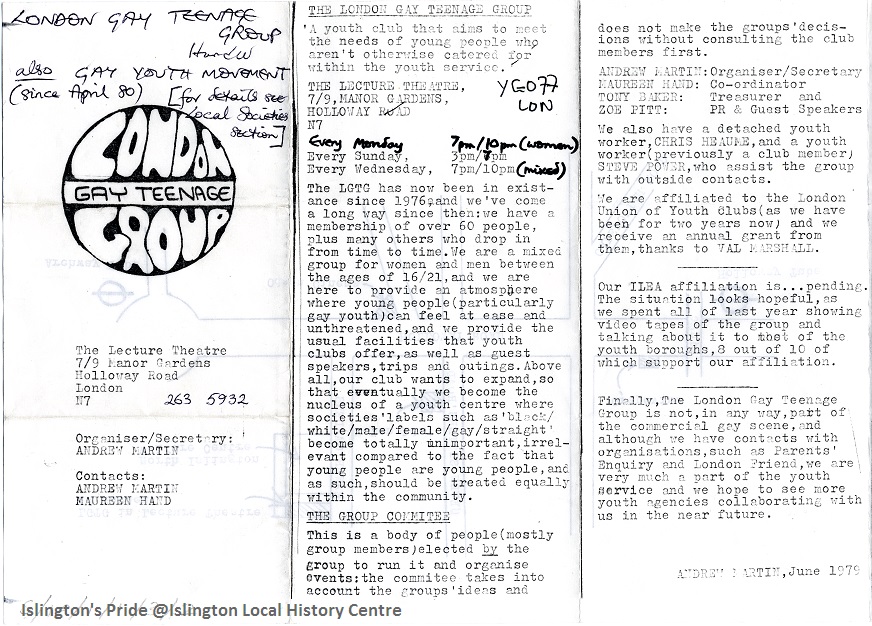 LONDON GAY TEENAGE
GROUP
also GAY YOUTH MOVEMENT
(since April 80) [for details see
Local Societies
section]
LONDON
GAY TEENAGE
GROUP
The Lecture Theatre
7/9 Manor Gardens
Holloway Road
London
N7 263 5932
Organiser/Secretary:
ANDREW MARTIN
Contacts:
ANDREW MARTIN
MAUREEN HAND
THE LONDON GAY TEENAGE GROUP
'A youth club that aims to meet
the needs of young people who
aren't otherwise catered for
within the youth service.'
THE LECTURE THEATRE,
7/9, MANOR GARDENS,
HOLLOWAY ROAD
N7
YG077
LON
Every Monday 7pm/10pm (women)
Every Sunday, 3pm/7pm
Every Wednesday, 7pm/10pm (mixed)
The LGTG has now been in exist-
ance since 1976,and we've come
a long way since then:we have a
membership of over 60 people,
plus many others who drop in
from time to time.We are a mixed
group for women and men between
the ages of 16/21,and we are
here to provide an atmosphere
where young people(particularly
gay youth)can feel at ease and
unthreatened,and we provide the
usual facilities that youth
clubs offer,as well as guest
speakers,trips and outings.Above
all,our club wants to expand,so
that eventually we become the
nucleus of a youth centre where
societies'labels such as'black/
white/male/female/gay/straight'
become totally unimportant,irrel-
evant compared to the fact that
young people are young people,and
as such,should be treated equally
within the community.
THE GROUP COMMITEE
This is a body of people(mostly
group members)elected by the
group to run it and organise
events:the commitee takes into
account the groups'ideas and
does not make the groups'decis-
ions without consulting the club
members first.
ANDREW MARTIN:Organiser/Secretary
MAUREEN HAND: Co-ordinator
TONY BAKER: Treasurer and
ZOE PITT: PR & Guest Speakers
We also have a detached youth
worker,CHRIS HEAUME,and a youth
worker(previously a club member)
STEVE POWER,who assist the group
with outside contacts.
We are affiliated to the London
Union of Youth Clubs(as we have
been for two years now) and we
receive an annual grant from
them,thanks to VAL MARSHALL.
Our ILEA affiliation is...pending.
The situation looks hopeful,as
we spent all of last year showing
video tapes of the group and
talking about it to most of the
youth boroughs,8 out of 10 of
which support our affiliation.
Finally,The London Gay Teenage
Group is not,in any way,part of
the commercial gay scene,and
although we have contacts with
organisations,such as Parents'
Enquiry and London Friend,we are
very much a part of the youth
service and we hope to see more
youth agencies collaborating with
us in the near future.
ANDREW MARTIN,June 1979
Islington's Pride @Islington Local History Centre